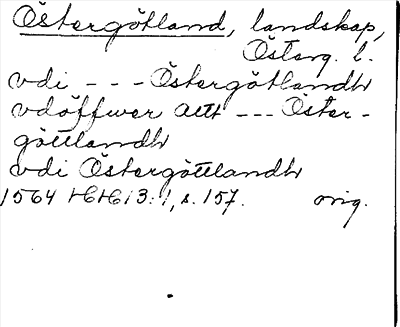 Östergötland, landskap,
Österg. l.
vdi --- Östergötlandh
vdöffwer altt --- Öster-
göttlandh
vdi Östergöttlandh
1564 HH 13:1, s. 157. orig.